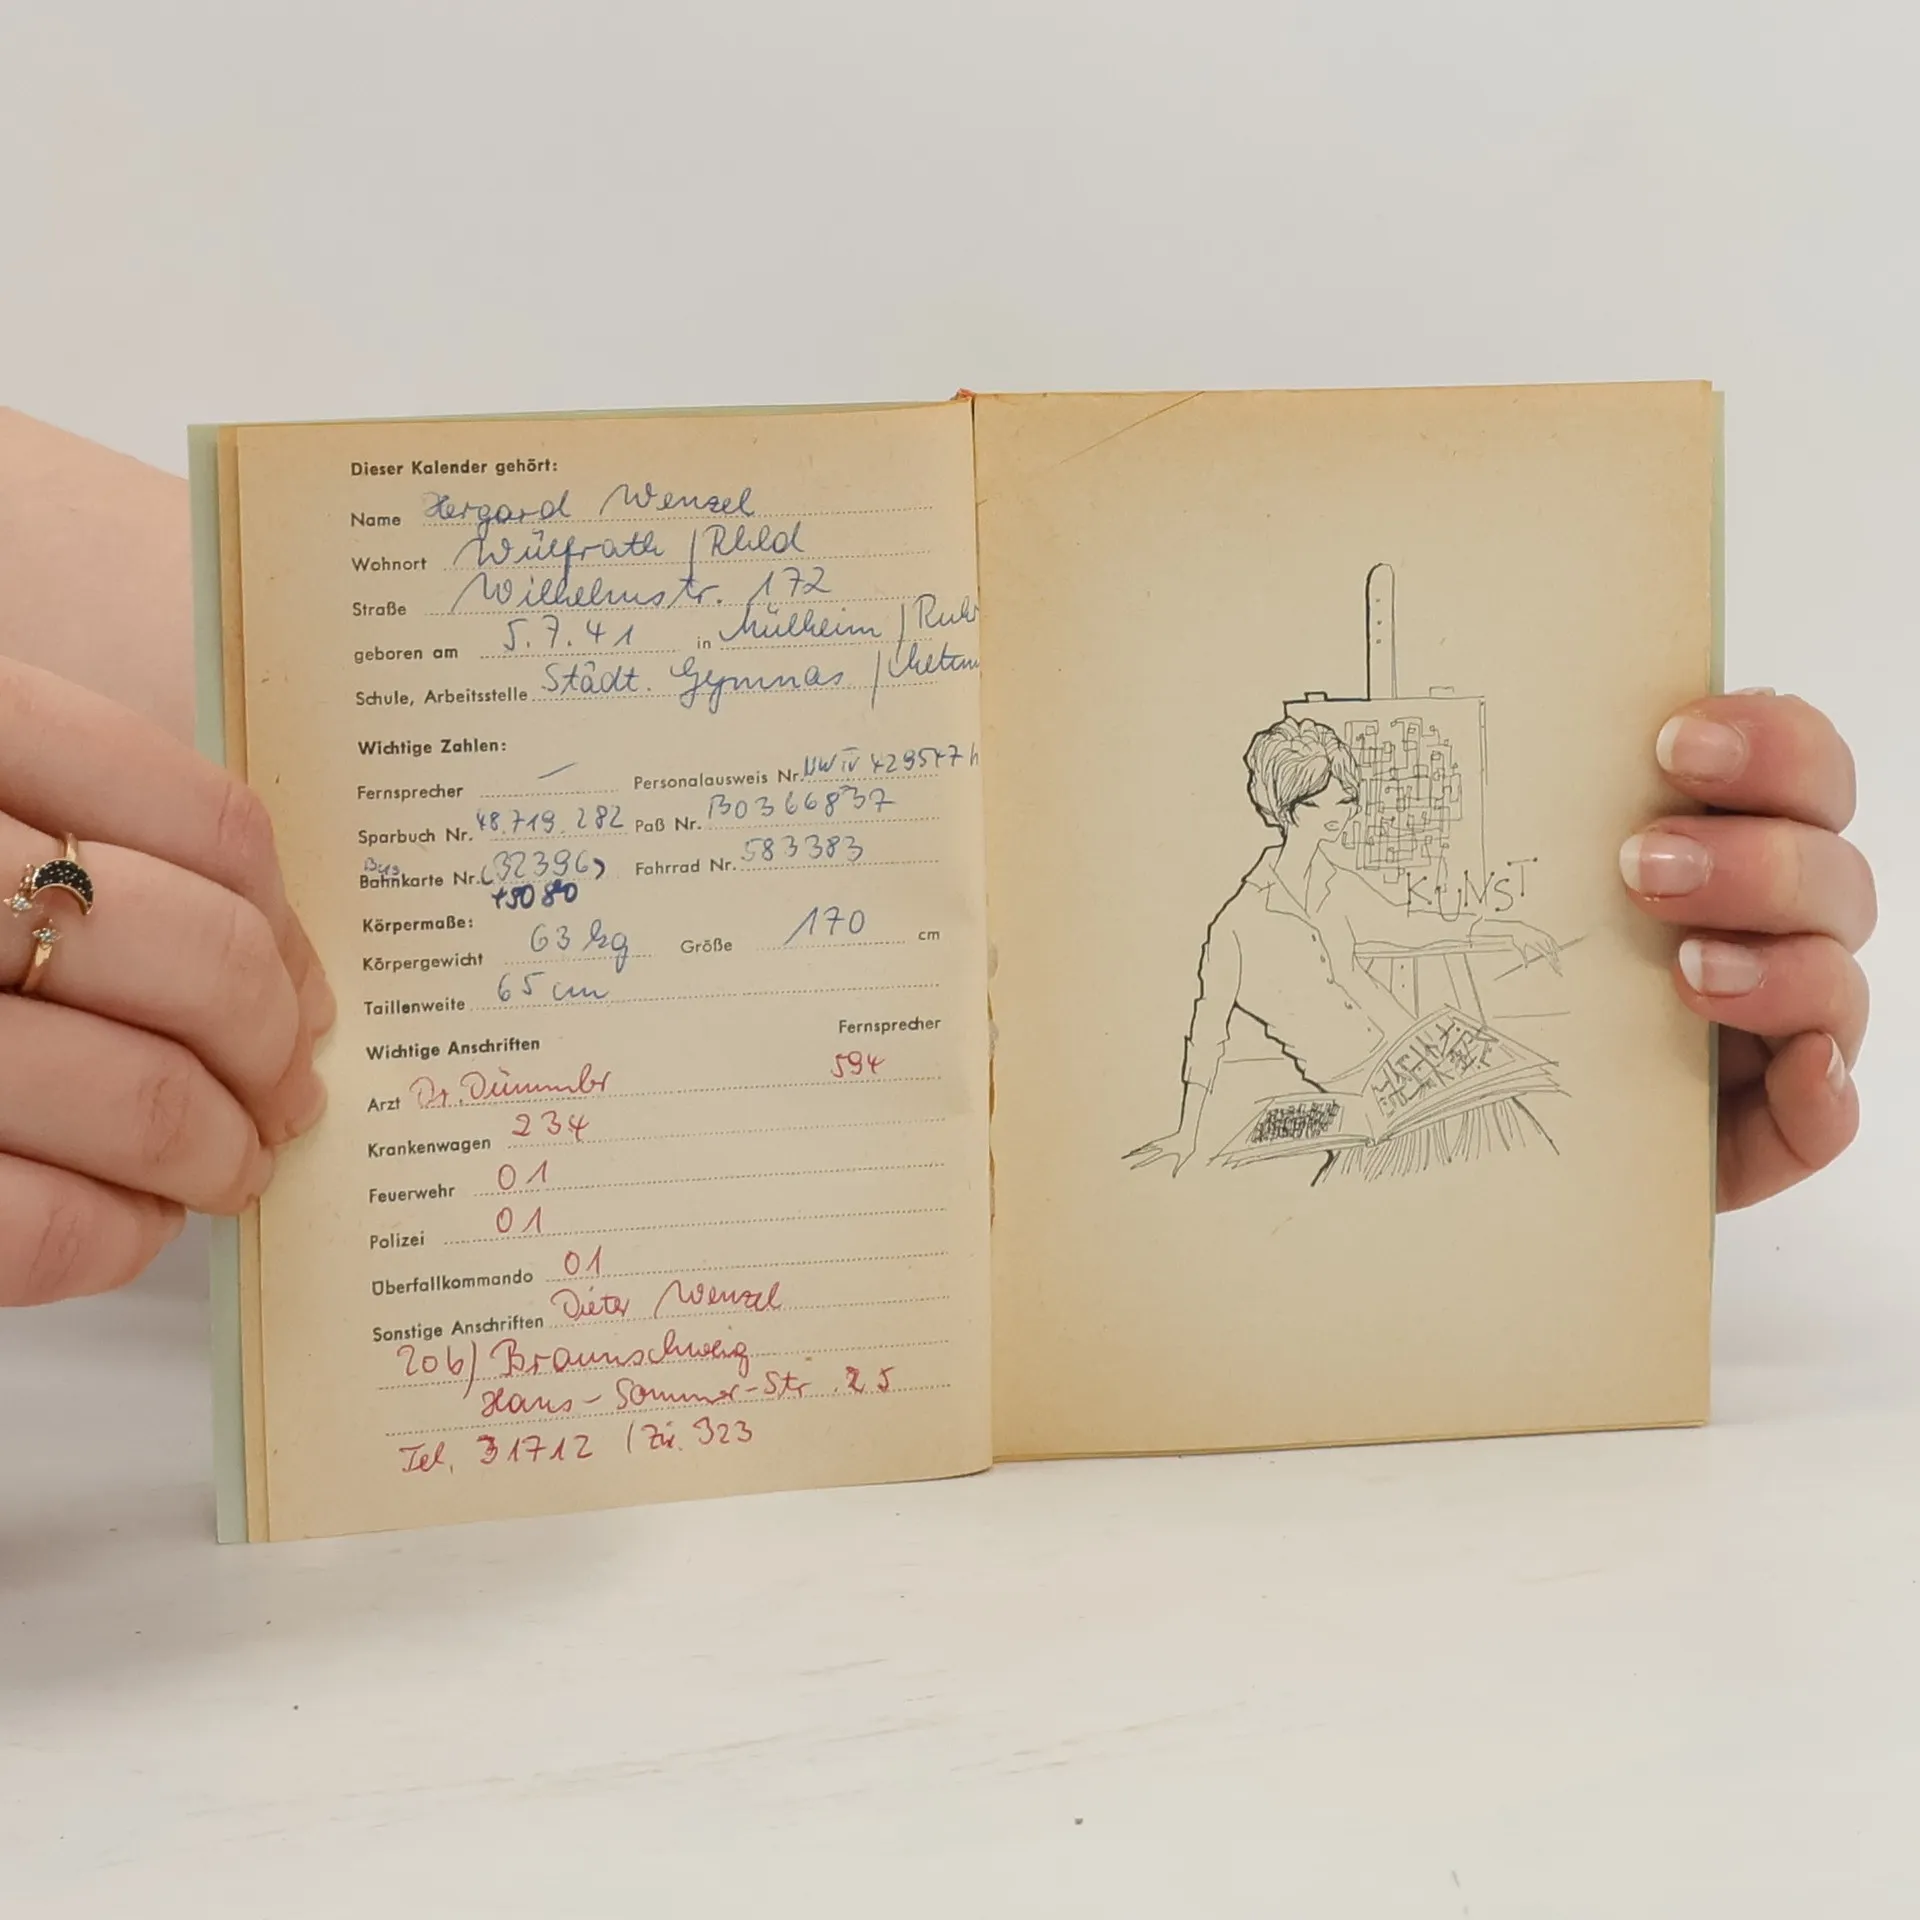 Dieser Kalender gehört:
Name Hergard Wenzel
Wohnort Wülfrath / Rhld
Straße Wilhelmstr. 172
geboren am 5.7.41 in Mülheim / Ruhr
Schule, Arbeitsstelle Städt. Gymnas /
Wichtige Zahlen:
Fernsprecher — Personalausweis Nr. NW IV 429547
Sparbuch Nr. 48.719.282 Paß Nr. B0366837
Bus
Bahnkarte Nr. (32396) Fahrrad Nr. 583383
Körpermaße:
Körpergewicht 63 kg Größe 170 cm
Taillenweite 65 cm
Wichtige Anschriften Fernsprecher
Arzt Dr. Dümmler 594
Krankenwagen 234
Feuerwehr 01
Polizei 01
Überfallkommando 01
Sonstige Anschriften Dieter Wenzel
20b) Braunschweig
Hans-Sommer-Str. 25
Tel. 31712 / Zi. 323
KUNST